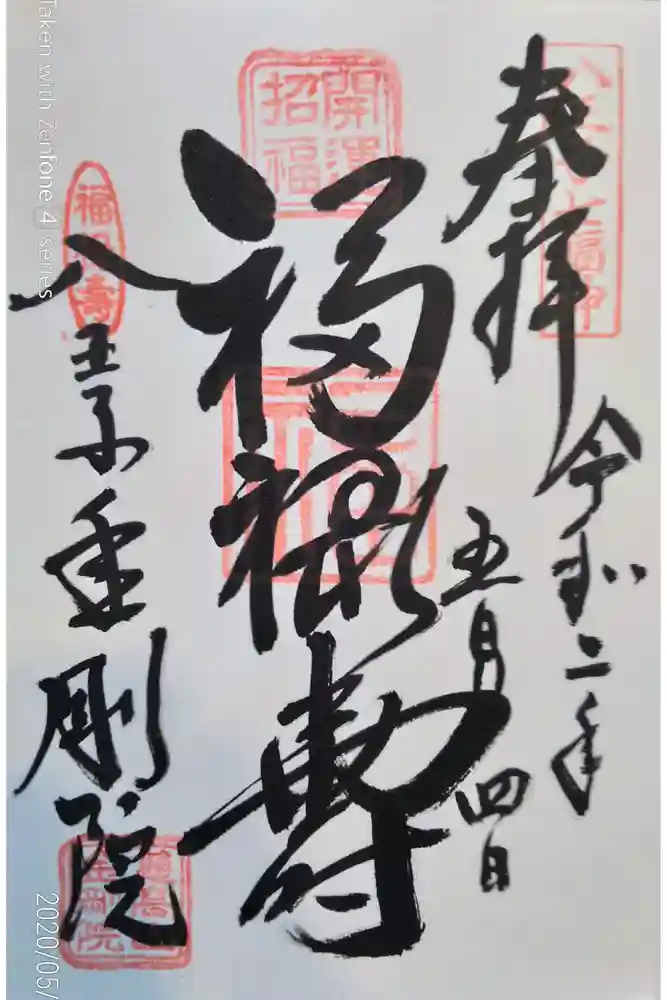 奉拝
八王子七福神
令和二年
五月四日
開運
招福
福禄壽
福禄壽
八王子金剛院
金剛院
Taken with Zenfone 4 series
2020/05/